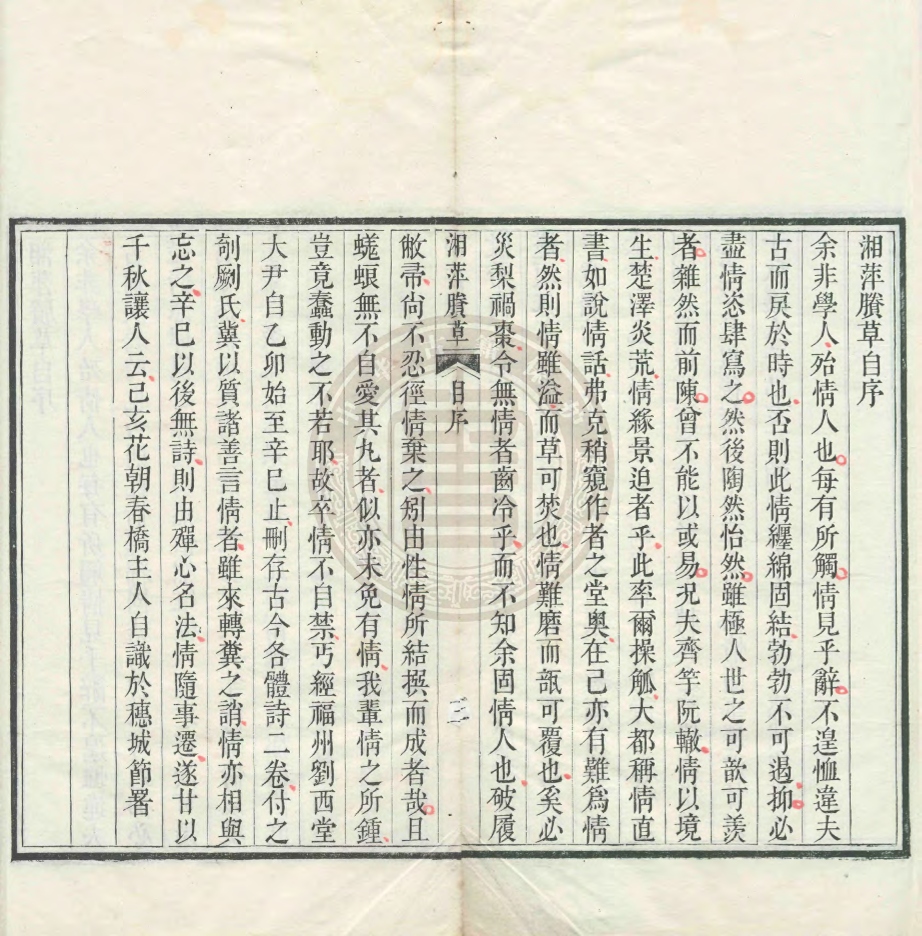 湘萍賸草自序
余非學人殆情人也每有所觸情見乎辭不遑恤違夫
古而戾於時也否則此情纏綿固結勃勃不可遏抑必
盡情恣肆寫之然後陶然怡然雖極人世之可歆可羨
者雜然而前陳曾不能以或易況夫齊竽阮轍情以境
生楚澤炎荒情緣景迫者乎此率爾操觚大都稱情直
書如說情話弗克稍窺作者之堂奧在己亦有難爲情
者然則情雖溢而草可焚也情難磨而瓿可覆也奚必
災梨禍棗令無情者齒冷乎而不知余固情人也破履
湘萍賸草 自序 三
敝帚尙不忍徑情棄之矧由性情所結撰而成者哉且
蜣蜋無不自愛其丸者似亦未免有情我輩情之所鍾
豈竟蠢動之不若耶故卒情不自禁丐經福州劉西堂
大尹自乙卯始至辛巳止刪存古今各體詩二卷付之
剞劂氏冀以質諸善言情者雖來轉糞之誚情亦相與
忘之辛巳以後無詩則由殫心名法情隨事遷遂甘以
千秋讓人云己亥花朝春橋主人自識於穗城節署